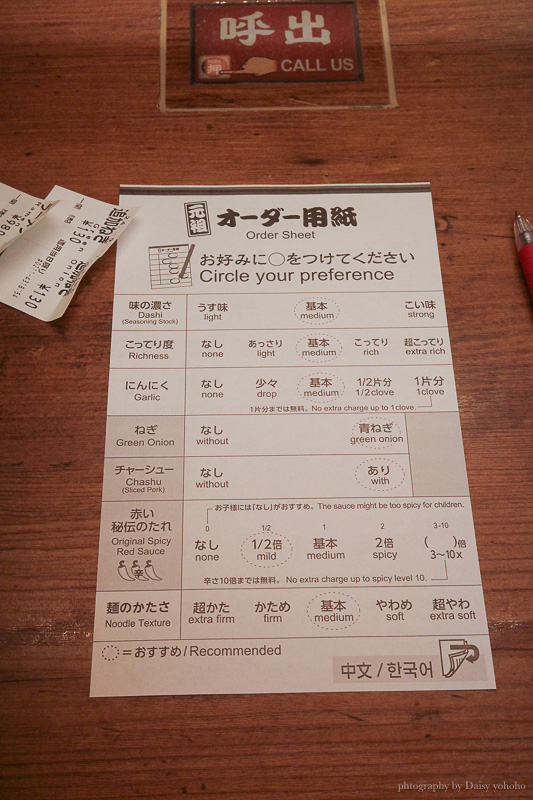 呼出
押 CALL US
元祖 オーダー用紙
Order Sheet
お好みに○をつけてください
Circle your preference
味の濃さ
Dashi
(Seasoning Stock)
うす味 基本 こい味
light medium strong
こってり度
Richness
なし あっさり 基本 こってり 超こってり
none light medium rich extra rich
にんにく
Garlic
なし 少々 基本 1/2片分 1片分
none drop medium 1/2clove 1clove
1片分までは無料。No extra charge up to 1clove.
ねぎ
Green Onion
なし 青ねぎ
without green onion
チャーシュー
Chashu
(Sliced Pork)
なし あり
without with
赤い
秘伝のたれ
Original Spicy
Red Sauce
辛
お子様には「なし」がおすすめ。The sauce might be too spicy for children.
0 1/2 1 2 3-10
なし 1/2倍 基本 2倍 ( )倍
none mild medium spicy 3〜10x
辛さ10倍までは無料。 No extra charge up to spicy level 10.
麺のかたさ
Noodle Texture
超かた かため 基本 やわめ 超やわ
extra firm firm medium soft extra soft
=おすすめ/Recommended
中文 / 한국어
¥130
photography by Daisy yohoho